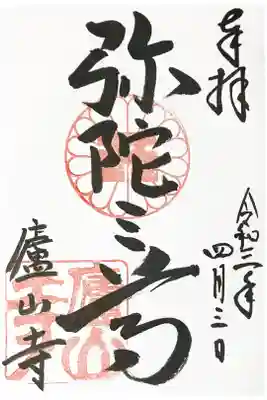 奉拝
令和二年四月三日
弥陀三尊
廬山寺